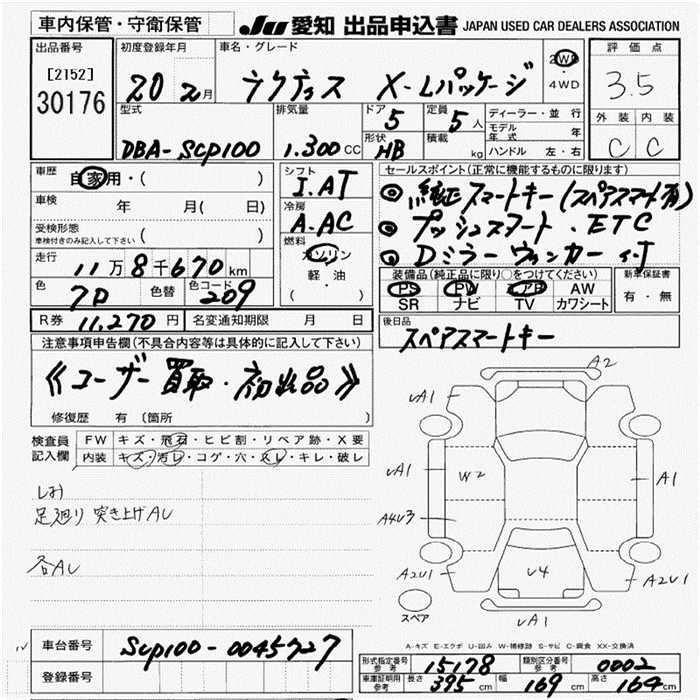 車内保管・守衛保管
JU 愛知 出品申込書 JAPAN USED CAR DEALERS ASSOCIATION
出品番号
[2152]
30176
初度登録年月
20 年 2月
車名・グレード
ラクティス X-Lパッケージ
2WD
・
4WD
評価点
3.5
外装 内装
C C
型式
DBA-SCP100
排気量
1.300cc
ドア
5
形状
HB
定員
5人
積載
kg
ディーラー・並行
モデル年式 年
ハンドル 左・右
車歴
自家用・( )
車検
年 月( 日)
受検形態
車検付きのみ記入して下さい ( )
走行
11万8千670km
色
7P
色替
色コード
209
シフト
I.AT
冷房
A.AC
燃料
ガソリン
軽・油
( )
セールスポイント(正常に機能するものに限ります)
◎純正スマートキー(スペアスマート有)
◎プッシュスタート.ETC
◎Dミラーウィンカー付
装備品(純正品に限り○をつけてください)
PS PW エアB AW
SR ナビ TV カワシート
新車保証書
有・無
R券 11,270円 名変通知期限 月 日
後日品
スペアスマートキー
注意事項申告欄(不具合内容等は具体的に記入して下さい)
《ユーザー買取・初出品》
修復歴 有 〔箇所
検査員
記入欄
FW キズ・飛石・ヒビ割・リペア跡・X要
内装 キズ・汚レ・コゲ・穴・スレ・キレ・破レ
しお
足廻り 突き上げAU
各AU
A2
UA1
UA1
W2
A1
A4U3
A2U1
U4
A2U1
スペア
UA1
A-キズ E-エクボ U-凹み W-補修跡 S-サビ C-腐食 XX-交換済
車台番号 SCP100-0045727
登録番号
形式指定番号
参考 15178
類別区分番号
参考 0002
車庫証明用
参考 長さ 395cm 幅 169cm 高さ 164cm